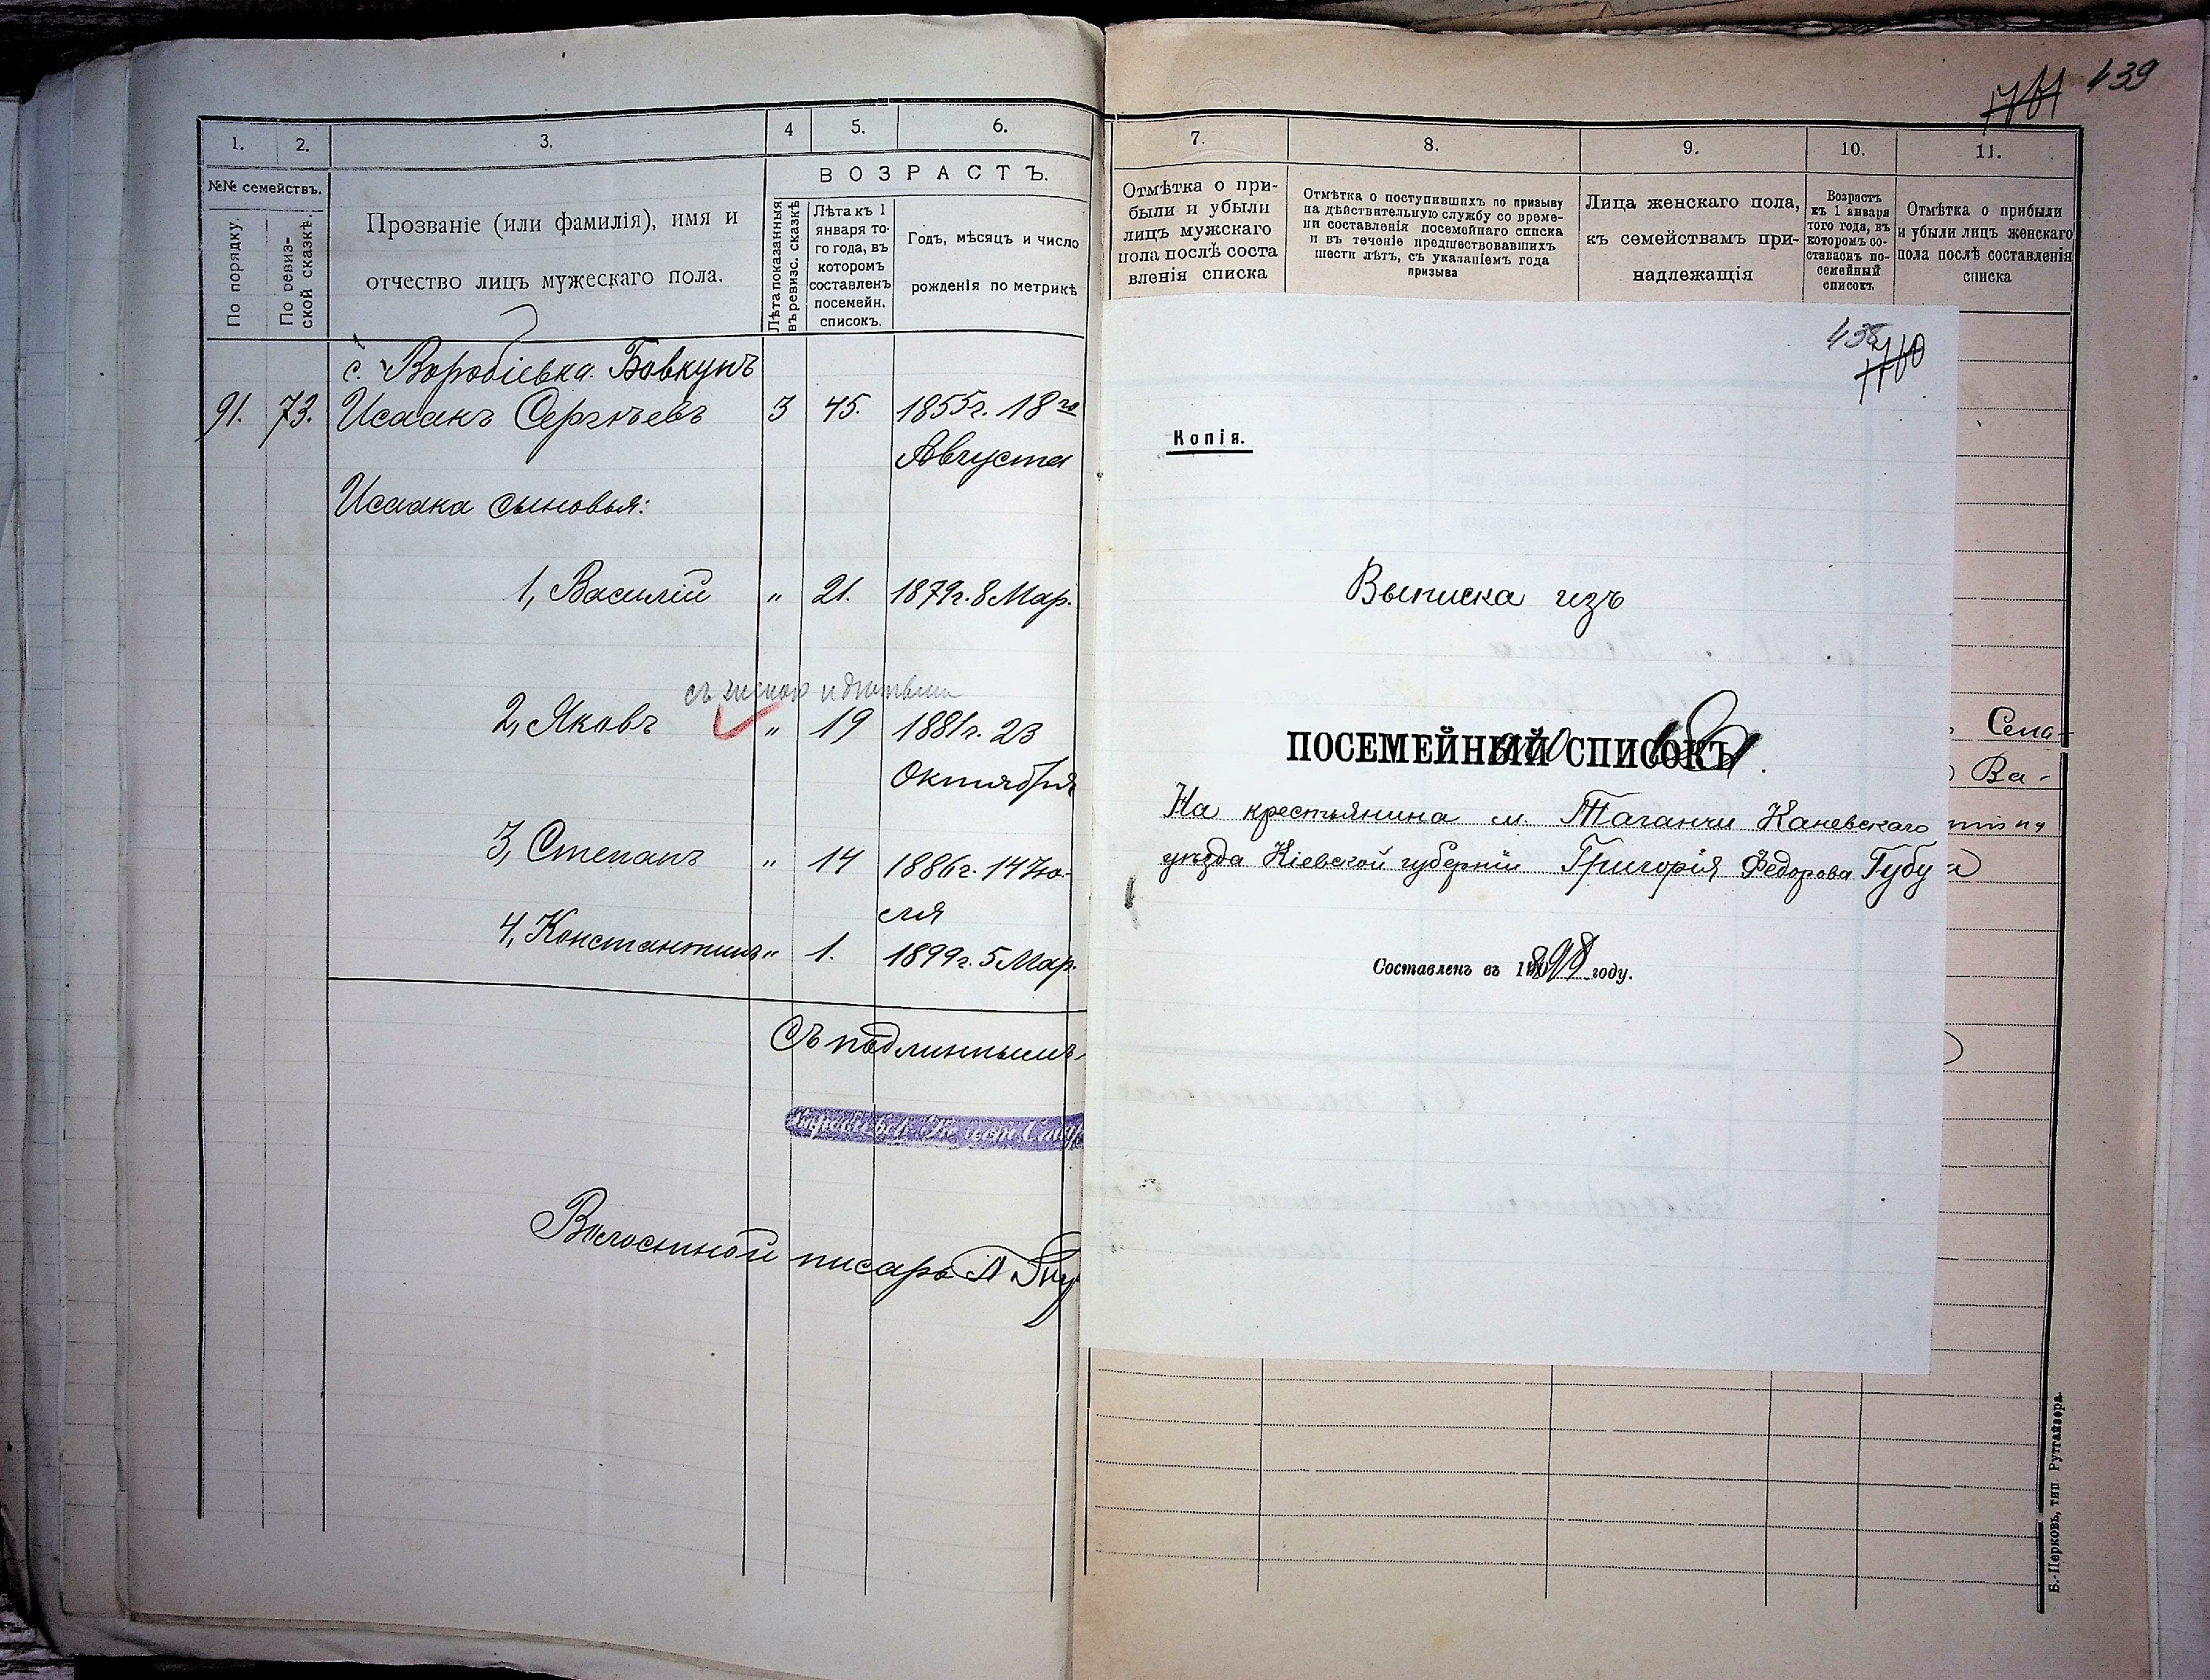 1.
2.
3.
4
5.
6.
№№ семействъ.
По порядку.
По ревиз-
ской сказкѣ.
Прозваніе (или фамилія), имя и
отчество лицъ мужескаго пола.
ВОЗРАСТЪ.
Лѣта показанныя
въ ревизс. сказкѣ
Лѣта къ 1
января то-
го года, въ
которомъ
составленъ
посемейн.
списокъ.
Годъ, мѣсяцъ и число
рожденія по метрикѣ
с. Воробіевка. Бовкунъ
91. 73. Исаакъ Сергѣевъ 3 45. 1855г. 18го
Августа
Исаака сыновья:
1, Василій " 21. 1879г. 8 Мар.
съ женою и дѣтьми
2, Яковъ " 19 1881г. 23
Октября
3, Степанъ " 14 1886г. 14 Iю-
ля
4, Константинъ " 1. 1899г. 5 Мар.
Съ подлиннымъ
Волостной писарь А
439
7.
8.
9.
10.
11.
Отмѣтка о при-
были и убыли
лицъ мужскаго
пола послѣ соста
вленія списка
Отмѣтка о поступившихъ по призыву
на дѣйствительную службу со време-
ни составленія посемейнаго списка
и въ теченіе предшествовавшихъ
шести лѣтъ, съ указаніемъ года
призыва
Лица женскаго пола,
къ семействамъ при-
надлежащія
Возрастъ
къ 1 января
того года, въ
которомъ со-
ставленъ по-
семейный
списокъ
Отмѣтка о прибыли
и убыли лицъ женскаго
пола послѣ составленія
списка
438
1760
Копія.
Выписка изъ
ПОСЕМЕЙНЫЙ СПИСОКЪ
На крестьянина м. Таганчи Каневскаго
уѣзда Кіевской губерніи Григорія Федорова Губу
Составленъ въ 1898 году.
Сема-
Ва-
Б.-Церковь, тип Рутгайзера.